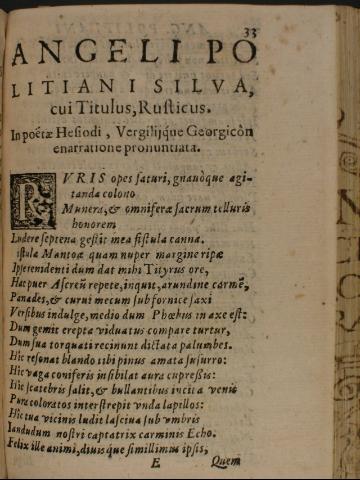 33
ANGELI PO
LITIANI SILVA,
cui Titulus, Rusticus.
In poëtæ Hesiodi, Vergilijque Georgicôn
enarratione pronuntiata.
RVRIS opes saturi, gnauòque agi-
tanda colono
Munera, & omniferæ sacrum telluris
honorem
Ludere septena gestit mea fistula canna.
istula Mantoæ quam nuper margine ripæ
Ipse renidenti dum dat mihi Tityrus ore,
Hac puer Ascreũ repete, inquit, arundine carmẽ,
Panades, & curui mecum sub fornice saxi
Versibus indulge, medio dum Phœbus in axe est:
Dum gemit erepta viduatus compare turtur,
Dum sua torquati recinunt dictata palumbes.
Hic resonat blando tibi pinus amata susurro:
Hic vaga coniferis insibilat aura cupressis:
Hic scatebris salit, & bullantibus incita venis
Pura coloratos interstrepit vnda lapillos:
Hic tua vicinis ludit lasciua sub vmbris
Iandudum nostri captatrix carminis Echo.
Felix ille animi, diuisque simillimus ipsis,
E Quem